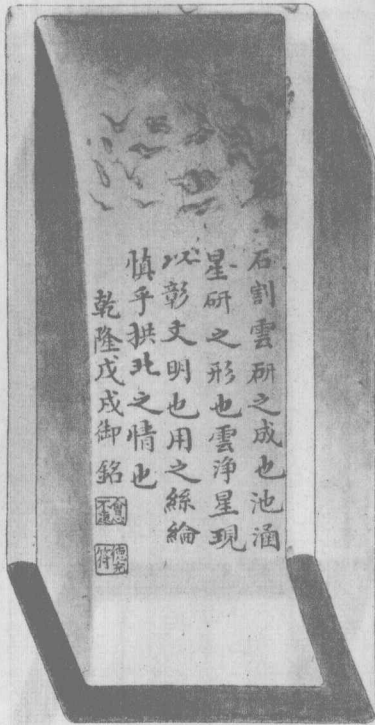 石割雲研之成也池涵
星研之形也雲淨星現
以彰文明也用之絲綸
慎乎拱北之情也
乾隆戊戌御銘
會心不遠
德充符